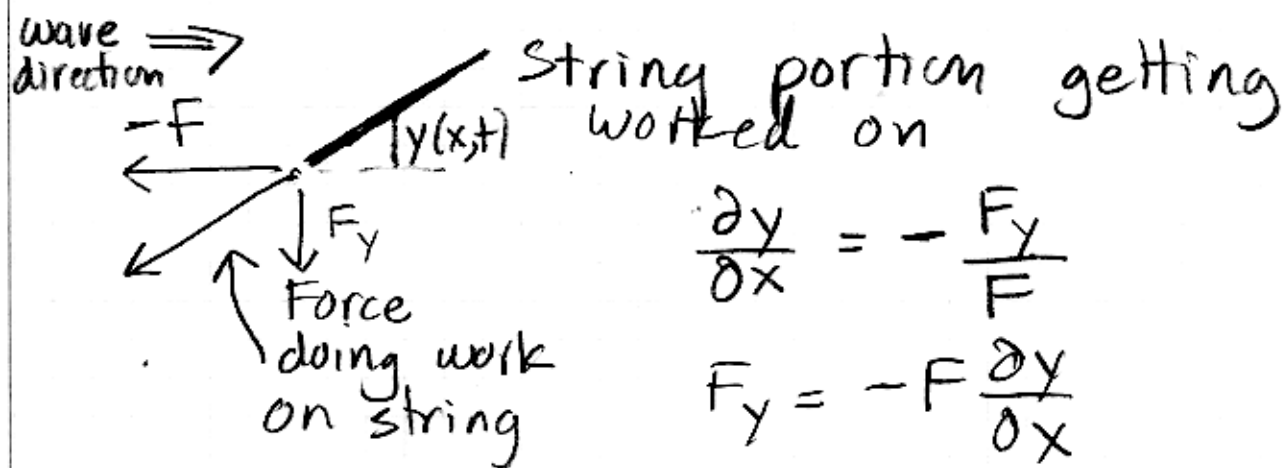 wave ⇒
direction
-F
String portion getting
worked on
y(x,t)
F_y
Force
doing work
on string
∂y/∂x = - F_y/F
F_y = -F ∂y/∂x